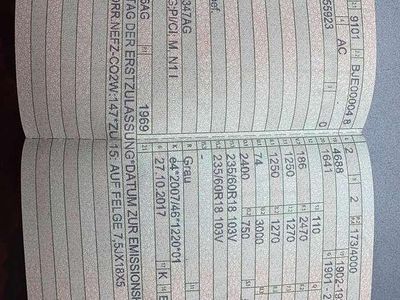 9101 BJE00004 8
AC
55923 0
ef.
347AG
G:PI/Cl. M. N1 I
6AG
1969
2 2 173/4000
4688
1641
110
186 2470
1250 1270
1250 1270
74 3000
2400 750
235/60R18 103V
235/60R18 103V
-
Grau
e4*2007/46*1220*01
27.10.2017 K
TAG DER ERSTZULASSUNG*DATUM ZUR EMISSIONSK
ORR.NEFZ-CO2W:147*ZU 15: AUF FELGE 7,5JX18X5